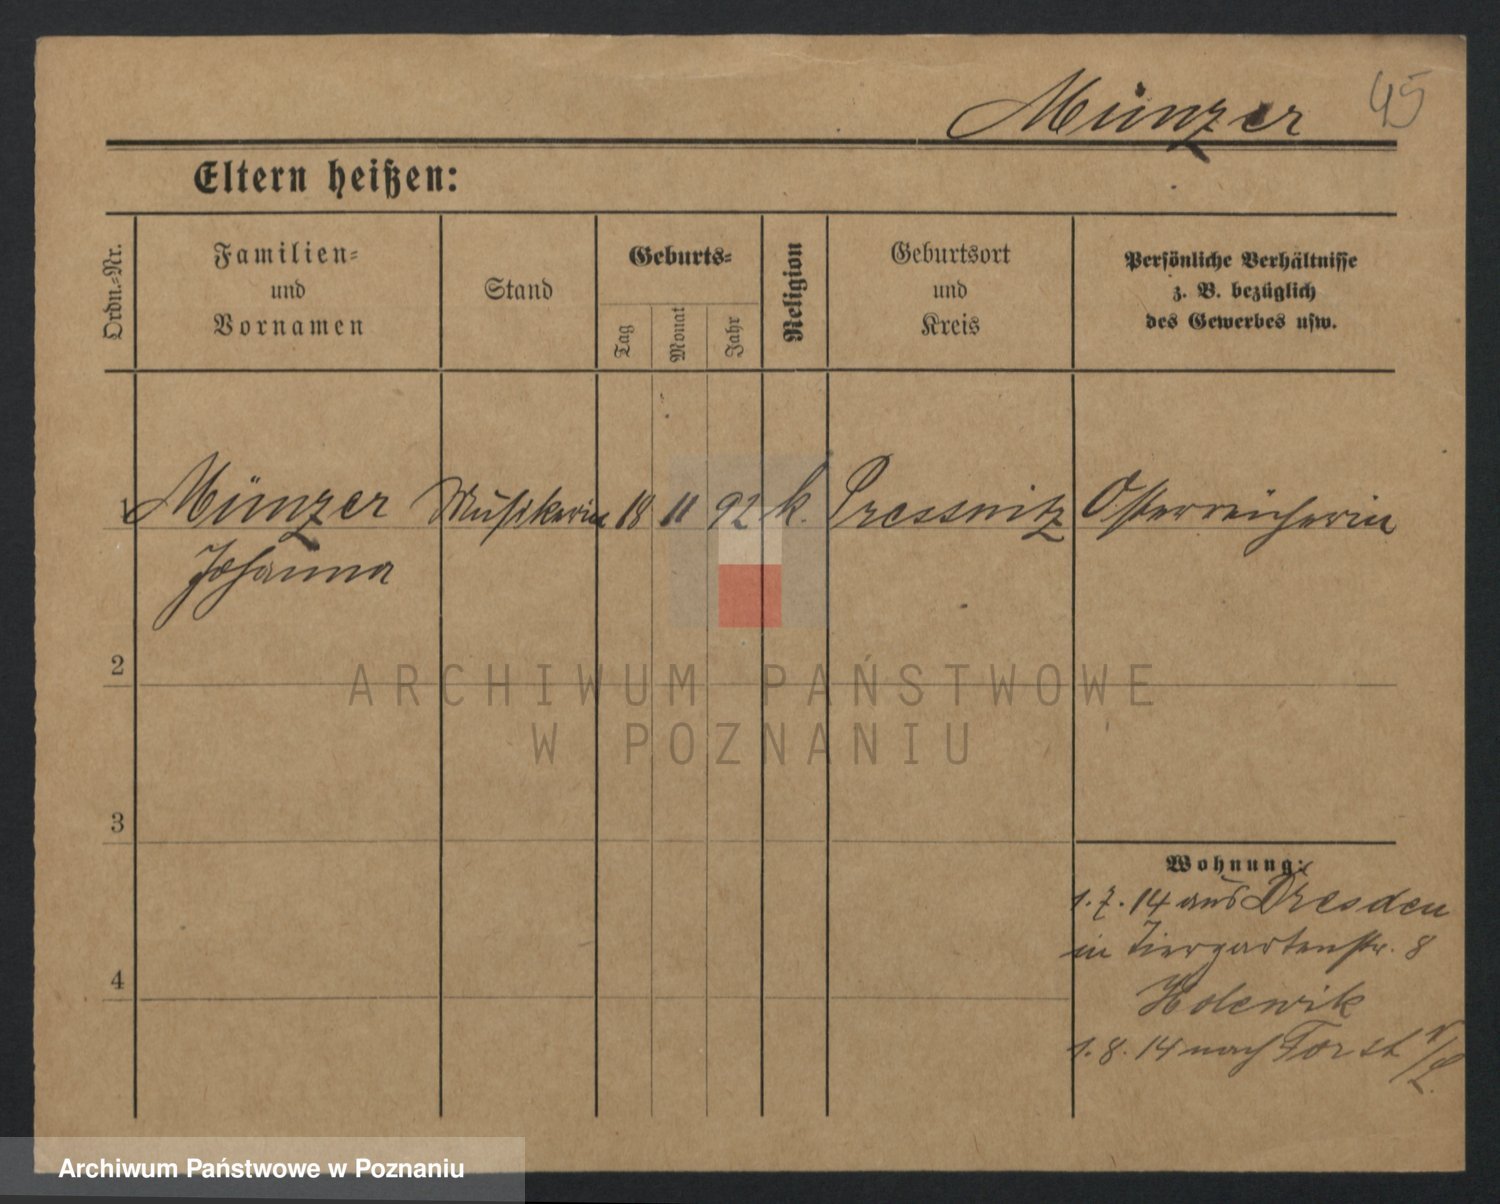 Münzer 45
Eltern heißen:
Ordn.-Nr.
Familien-
und
Vornamen
Stand
Geburts-
Tag
Monat
Jahr
Religion
Geburtsort
und
Kreis
Persönliche Verhältnisse
z. B. bezüglich
des Gewerbes usw.
1 Münzer Musikerin 18 11 92 k. Pressnitz Österreicherin
Johanna
2
3
4
Wohnung:
1. 7. 14 aus Dresden
in Tiergartenstr. 8
Holewik
1. 8. 14 nach Forst
ARCHIWUM PAŃSTWOWE
W POZNANIU
Archiwum Państwowe w Poznaniu